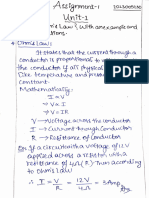 Assignment-1
Unit-1
Ohm's Law { with an example and
Ohm's Law:
It states that the current through a
conductor is proportional to voltage
the conductor if all physical
like temperature and pressure
Constant.
Mathematically:
I ∝ V
⇒ V ∝ I
⇒ V = IR
V → Voltage across the conductor
I → Current through Conductor
R → Resistance of Conductor.
for Ex: If a circuit with a voltage of 12
applied across a resistor with a
resistance of 4Ω then according
to Ohm's Law:
I = V/R = 12V/4Ω = 3 Amp